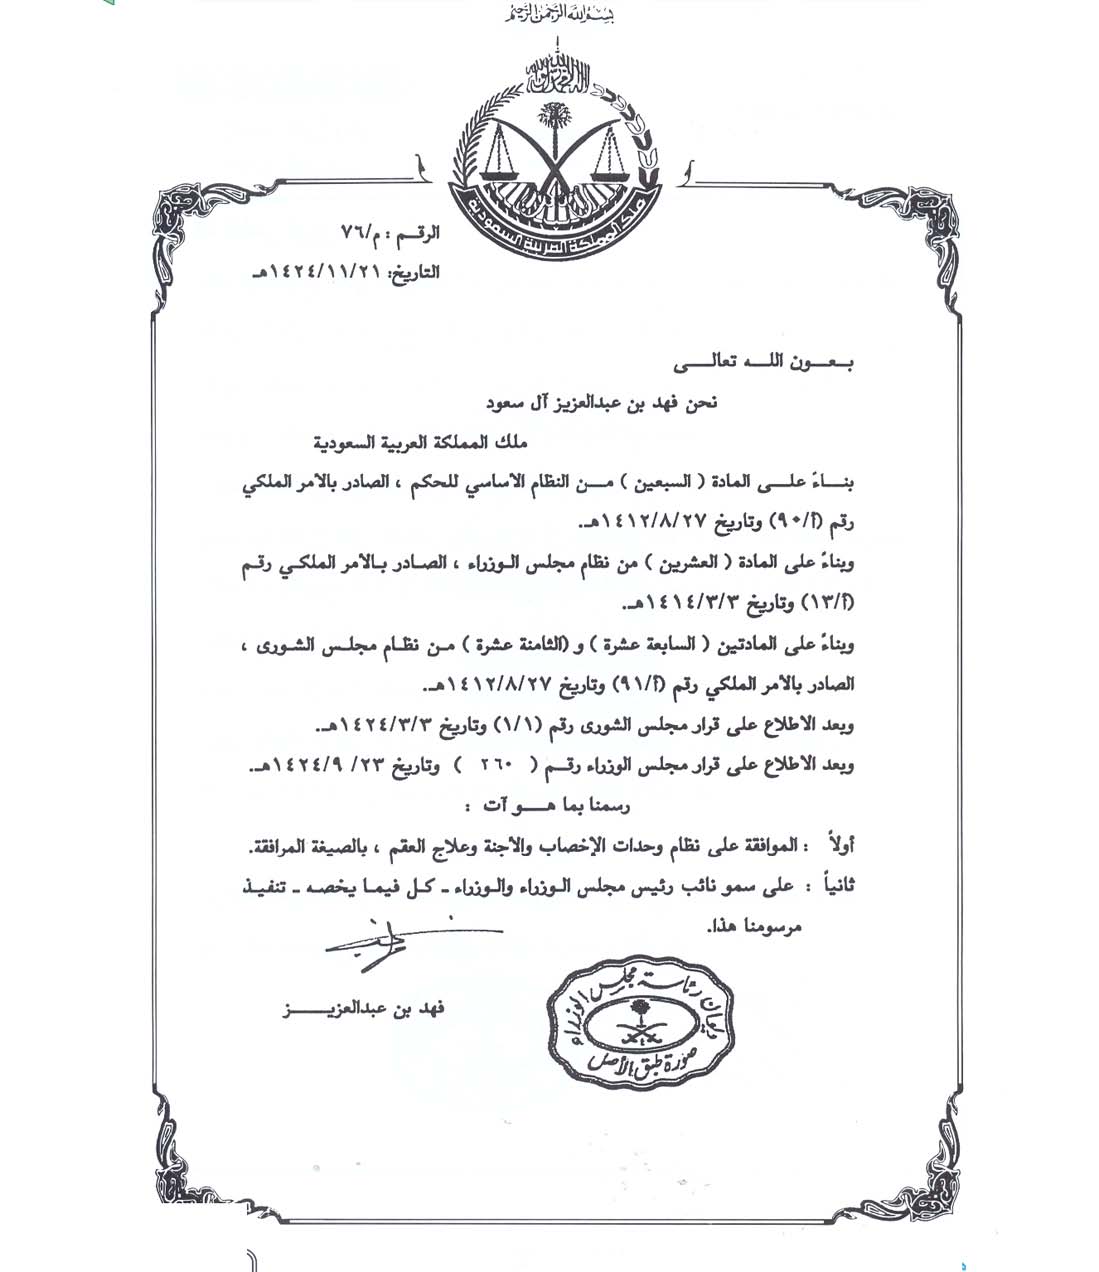 بسم الله الرحمن الرحيم
ملك المملكة العربية السعودية
الرقـم : م/٧٦
التاريخ: ١٤٢٤/١١/٢١هـ
بـعـــون اللـــه تعالـــى
نحن فهد بن عبدالعزيز آل سعود
ملك المملكة العربية السعودية
بنـاءً علـــى المادة ( السبعين ) مـــن النظام الأساسي للحكم ، الصادر بالأمر الملكي
رقم (أ/٩٠) وتاريخ ١٤١٢/٨/٢٧هـ.
وبناءً على المادة ( العشرين ) من نظام مجلس الـوزراء ، الصـادر بـالأمر الملكـي رقـم
(أ/١٣) وتاريخ ١٤١٤/٣/٣هـ.
وبناءً على المادتين ( السابعة عشرة ) و (الثامنة عشرة ) مـن نظـام مجلـس الشورى ،
الصادر بالأمر الملكي رقم (أ/٩١) وتاريخ ١٤١٢/٨/٢٧هـ.
وبعد الاطلاع على قرار مجلس الشورى رقم (١/١) وتاريخ ١٤٢٤/٣/٣هـ.
وبعد الاطلاع على قرار مجلس الوزراء رقـم ( ٢٦٠ ) وتاريخ ٢٣/ ١٤٢٤/٩هـ.
رسمنا بما هـــو آت :
أولاً : الموافقة على نظام وحدات الإخصاب والأجنة وعلاج العقم ، بالصيغة المرافقة.
ثانياً : على سمو نائب رئيس مجلس الـوزراء والـوزراء ـ كـل فيمـا يخصـه ـ تنفيـذ
مرسومنا هذا.
فهد بن عبدالعزيـــــز
ديوان رئاسة مجلس الوزراء
صورة طبق الأصل